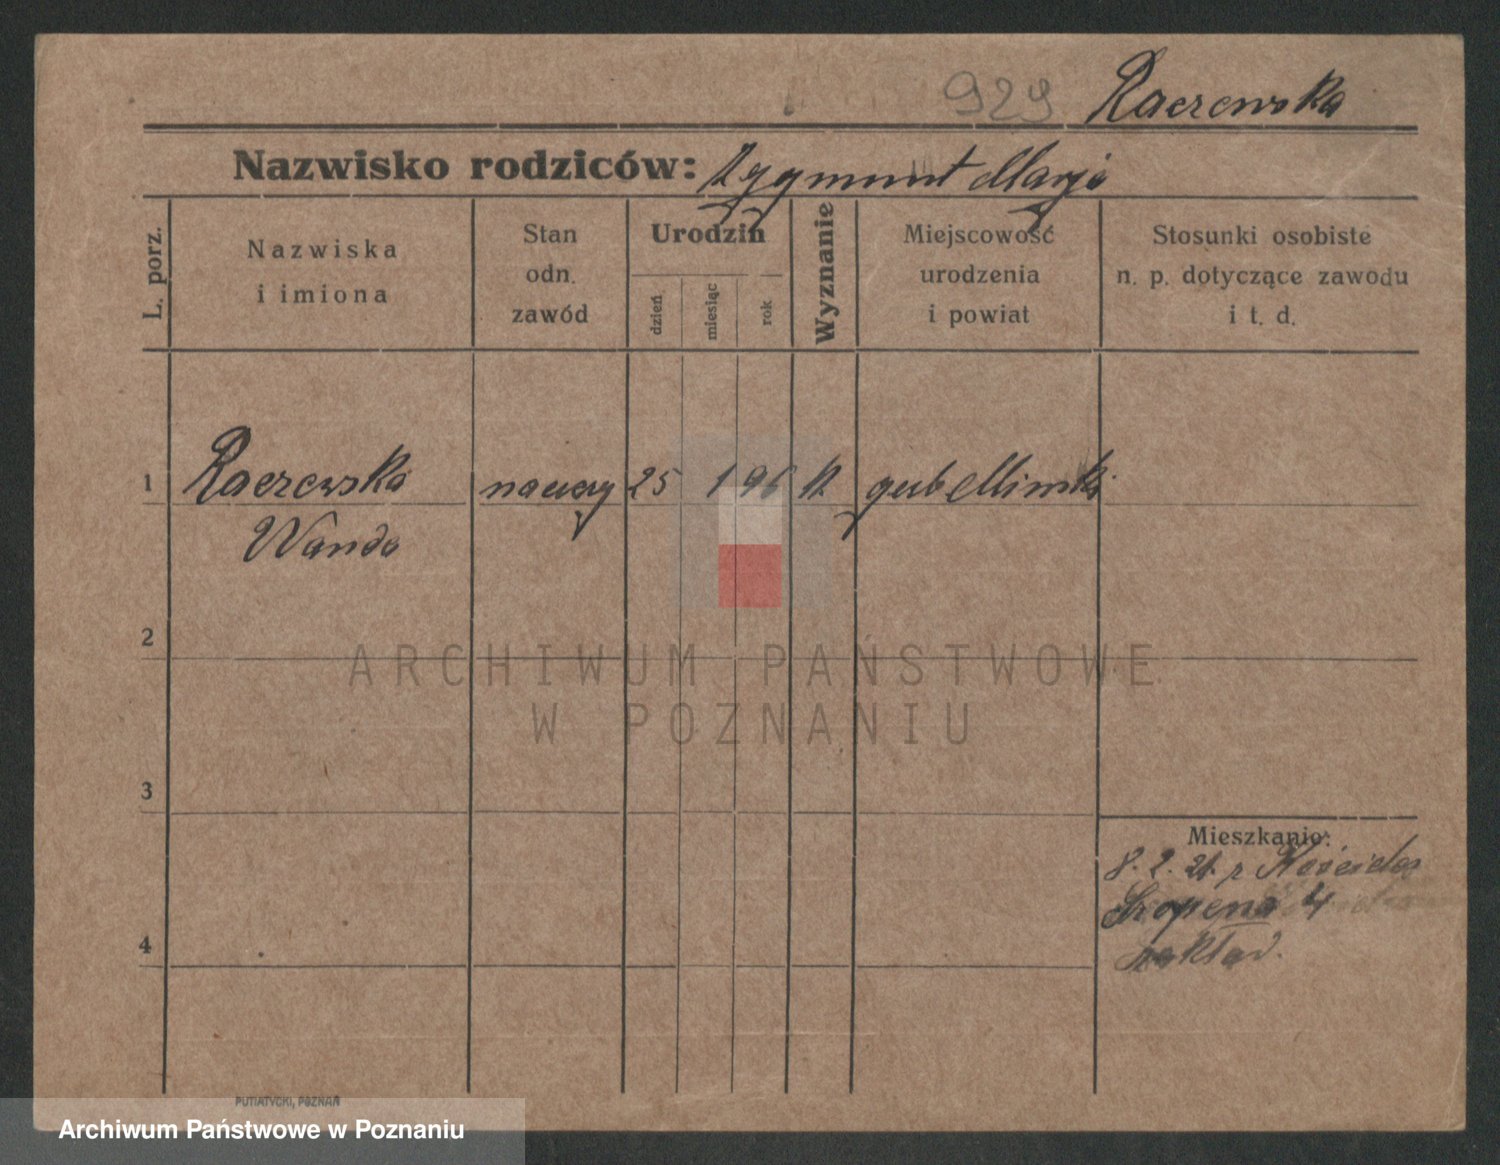 929 Raczewska
Nazwisko rodziców: Zygmunt Marja
L. porz.
Nazwiska
i imiona
Stan
odn.
zawód
Urodzin
dzień
miesiąc
rok
Wyznanie
Miejscowość
urodzenia
i powiat
Stosunki osobiste
n. p. dotyczące zawodu
i t. d.
1 Raczewska naucz 25 1 96 k gub Mińska
Wanda
2
ARCHIWUM PAŃSTWOWE
W POZNANIU
3
Mieszkanie:
8. 2. 21. z Kościelna
Szopena 4
zakład.
4
PUTIATYCKI, POZNAŃ
Archiwum Państwowe w Poznaniu